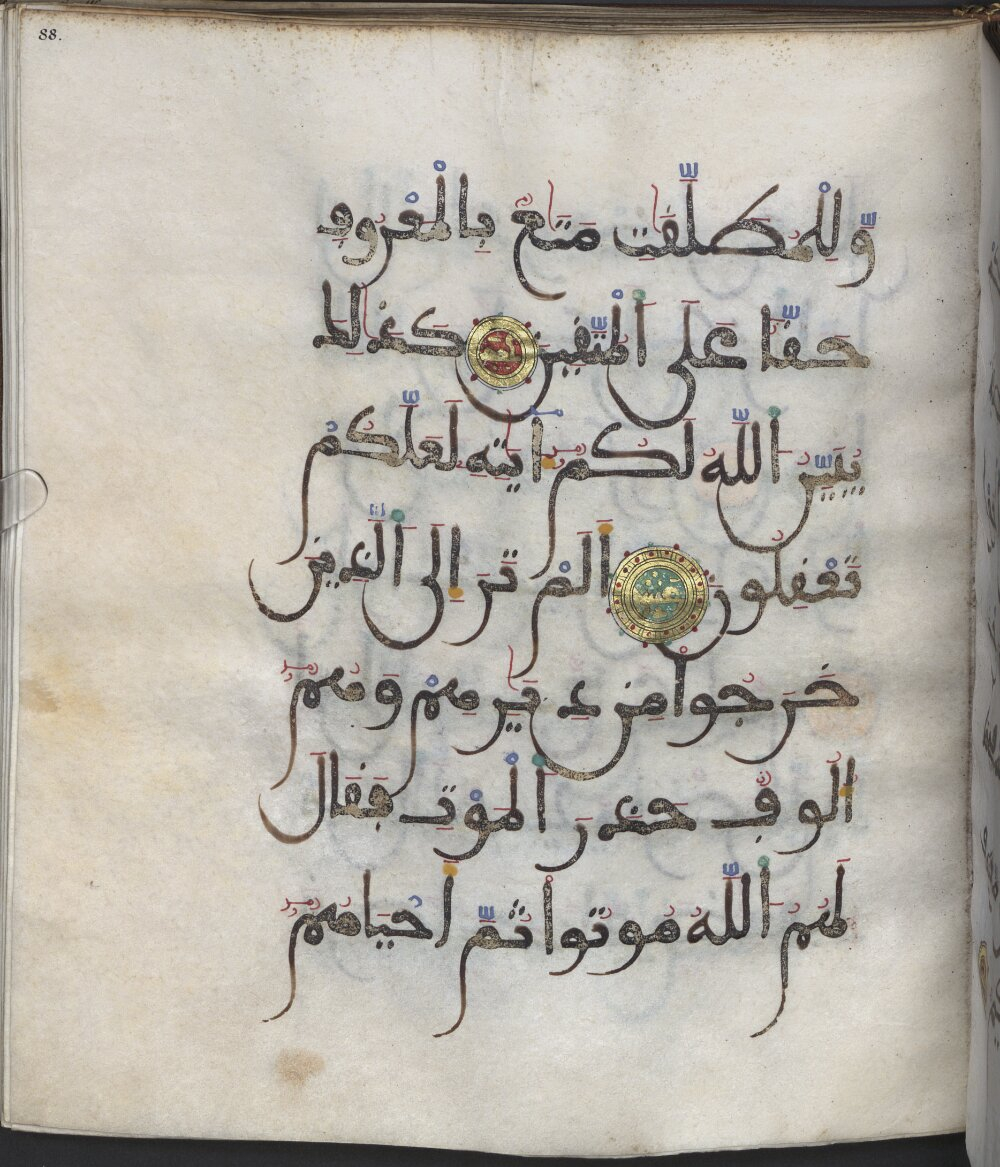 88.
وللمطلقت متع بالمعروف
حقا على المتقين كذلك
يبين الله لكم ايته لعلكم
تعقلون الم تر الى الذين
خرجوا من ديرهم وهم
الوف حذر الموت فقال
لهم الله موتوا ثم احياهم